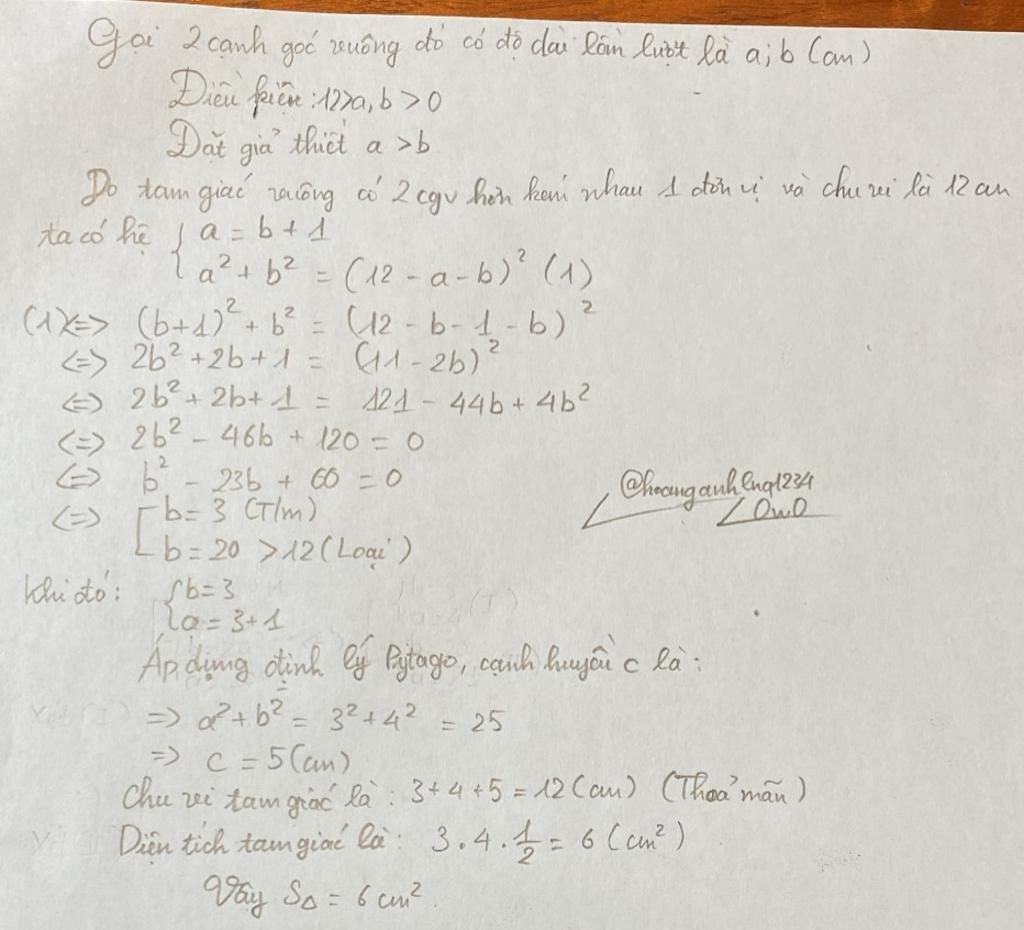 Gọi 2 cạnh góc vuông đó có độ dài lần lượt là a; b (cm)
Điều kiện: 12>a, b > 0
Đặt giả thiết a > b
Do tam giác vuông có 2 cgv hơn kém nhau 1 đơn vị và chu vi là 12 cm
ta có hệ { a = b + 1
a² + b² = (12 - a - b)² (1)
(1) <=> (b+1)² + b² = (12 - b - 1 - b)²
<=> 2b² + 2b + 1 = (11 - 2b)²
<=> 2b² + 2b + 1 = 121 - 44b + 4b²
<=> 2b² - 46b + 120 = 0
<=> b² - 23b + 60 = 0
<=> [ b = 3 (T/m)
b = 20 > 12 (Loại)
@hoanganhlnq1234
OwO
Khi đó: { b = 3
a = 3 + 1
Áp dụng định lý Pytago, cạnh huyền c là:
=> a² + b² = 3² + 4² = 25
=> c = 5 (cm)
Chu vi tam giác là: 3 + 4 + 5 = 12 (cm) (Thoả mãn)
Diện tích tam giác là: 3 . 4 . 1/2 = 6 (cm²)
Vậy S△ = 6 cm².